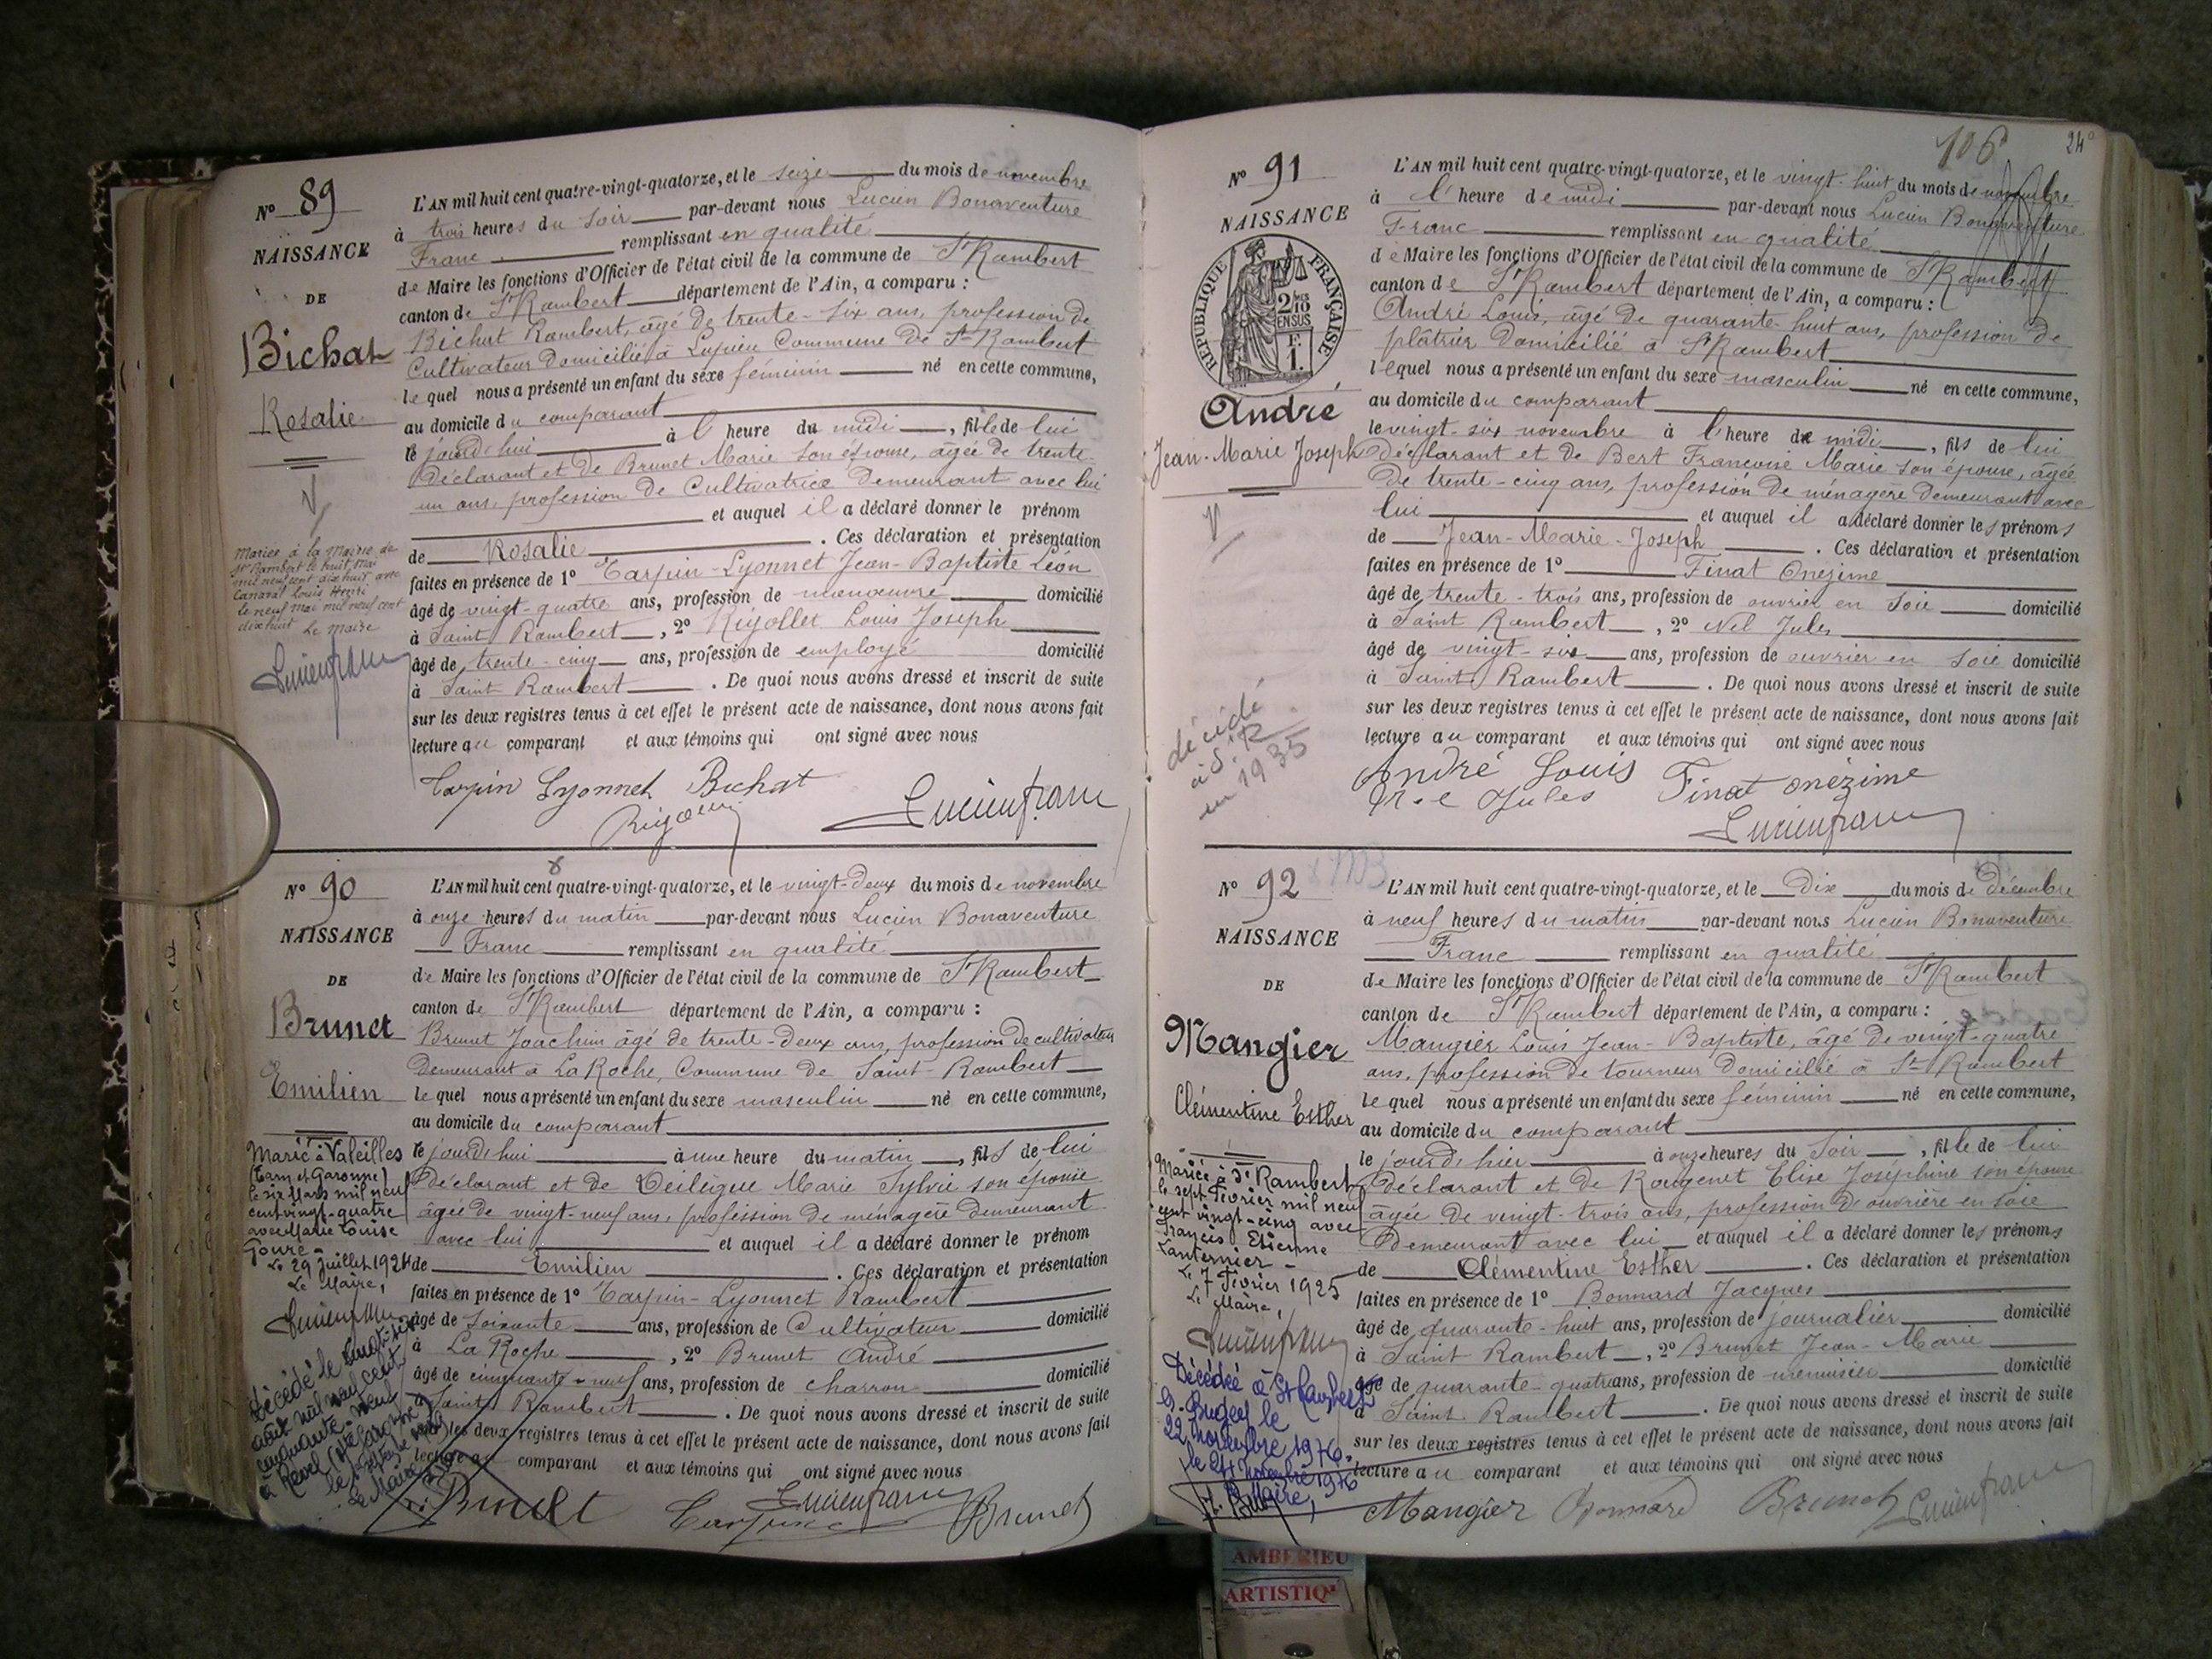 Nº 89
NAISSANCE
DE
Bichat
Rosalie
Mariée à la Mairie de
St Rambert le huit Mai
mil neuf cent dix huit avec
Canaral Louis Henri
le neuf mai mil neuf cent
dix huit Le Maire
Lucienfranc
L'AN mil huit cent quatre-vingt-quatorze, et le seize du mois de novembre
à trois heures du soir par-devant nous Lucien Bonaventure
Franc remplissant en qualité
de Maire les fonctions d'Officier de l'état civil de la commune de St Rambert
canton de St Rambert département de l'Ain, a comparu :
Bichat Rambert, âgé de trente-six ans, profession de
Cultivateur domicilié à Commune de St Rambert
lequel nous a présenté un enfant du sexe féminin né en cette commune,
au domicile du comparant
le jourd'hui à l' heure du midi, fille de lui
déclarant et de Brunet Marie son épouse, âgée de trente-
un ans, profession de Cultivatrice demeurant avec lui
et auquel il a déclaré donner le prénom
de Rosalie. Ces déclaration et présentation
faites en présence de 1º Tarpin-Lyonnet Jean-Baptiste Léon
âgé de vingt-quatre ans, profession de manoeuvre domicilié
à Saint Rambert, 2º Rigollet Louis Joseph
âgé de trente-cinq ans, profession de employé domicilié
à Saint Rambert. De quoi nous avons dressé et inscrit de suite
sur les deux registres tenus à cet effet le présent acte de naissance, dont nous avons fait
lecture au comparant et aux témoins qui ont signé avec nous
Tarpin Lyonnet Bichat
Lucienfranc
Nº 90
NAISSANCE
DE
Brunet
Emilien
Marié à Valeilles
(Tarn et Garonne)
le six Mars mil neuf
cent vingt-quatre
avec Marie Louise
Goure -
Le 29 juillet 1924
Le Maire,
Lucienfranc
Décédé le vingt-six
août mil neuf cent
cinquante-neuf
à Revel (Hte Garonne)
le septembre
Le Maire
L'AN mil huit cent quatre-vingt-quatorze, et le vingt-deux du mois de novembre
à onze heures du matin par-devant nous Lucien Bonaventure
Franc remplissant en qualité
de Maire les fonctions d'Officier de l'état civil de la commune de St Rambert
canton de St Rambert département de l'Ain, a comparu :
Brunet Joachim âgé de trente-deux ans, profession de cultivateur
demeurant à La Roche, Commune de Saint-Rambert
lequel nous a présenté un enfant du sexe masculin né en cette commune,
au domicile du comparant
le jourd'hui à une heure du matin, fils de lui
déclarant et de Marie Sylvie son épouse
âgée de vingt-neuf ans, profession de ménagère demeurant
avec lui et auquel il a déclaré donner le prénom
de Emilien. Ces déclaration et présentation
faites en présence de 1º Tarpin-Lyonnet Rambert
âgé de soixante ans, profession de Cultivateur domicilié
à La Roche, 2º Brunet André
âgé de cinquante-neuf ans, profession de charron domicilié
à Saint Rambert. De quoi nous avons dressé et inscrit de suite
sur les deux registres tenus à cet effet le présent acte de naissance, dont nous avons fait
lecture au comparant et aux témoins qui ont signé avec nous
Brunet Tarpin Lucienfranc Brunet
106
24
Nº 91
NAISSANCE
RÉPUBLIQUE FRANÇAISE
2/10 EN SUS
F. 1.
André
Jean-Marie Joseph
décédé
à S.R.
en 1935
L'AN mil huit cent quatre-vingt-quatorze, et le vingt-huit du mois de novembre
à l' heure de midi par-devant nous Lucien Bonaventure
Franc remplissant en qualité
de Maire les fonctions d'Officier de l'état civil de la commune de St Rambert
canton de St Rambert département de l'Ain, a comparu :
André Louis, âgé de quarante-huit ans, profession de
plâtrier domicilié à St Rambert
lequel nous a présenté un enfant du sexe masculin né en cette commune,
au domicile du comparant
le vingt-six novembre à l'heure de midi, fils de lui
déclarant et de Bert Françoise Marie son épouse, âgée
de trente-cinq ans, profession de ménagère demeurant avec
lui et auquel il a déclaré donner les prénoms
de Jean-Marie-Joseph. Ces déclaration et présentation
faites en présence de 1º Finat Onézime
âgé de trente-trois ans, profession de ouvrier en soie domicilié
à Saint Rambert, 2º Nel Jules
âgé de vingt-six ans, profession de ouvrier en soie domicilié
à Saint Rambert. De quoi nous avons dressé et inscrit de suite
sur les deux registres tenus à cet effet le présent acte de naissance, dont nous avons fait
lecture au comparant et aux témoins qui ont signé avec nous
André Louis Finat onézime
Jules Lucienfranc
Nº 92
NAISSANCE
DE
Mangier
Clémentine Esther
Mariée à St Rambert
le sept Février mil neuf
cent vingt-cinq avec
François Etienne
Lanternier -
Le 7 Février 1925
Le Maire,
Lucienfranc
Décédée à St Rambert
en Bugey le
22 novembre 1976
le 24 novembre 1976
Le Maire,
L'AN mil huit cent quatre-vingt-quatorze, et le Dix du mois de Décembre
à neuf heures du matin par-devant nous Lucien Bonaventure
Franc remplissant en qualité
de Maire les fonctions d'Officier de l'état civil de la commune de St Rambert
canton de St Rambert département de l'Ain, a comparu :
Mangier Louis Jean-Baptiste, âgé de vingt-quatre
ans, profession de tourneur domicilié à St Rambert
lequel nous a présenté un enfant du sexe féminin né en cette commune,
au domicile du comparant
le jourd'hier à onze heures du soir, fille de lui
déclarant et de Rougenet Elise Joséphine son épouse
âgée de vingt-trois ans, profession d'ouvrière en soie
demeurant avec lui et auquel il a déclaré donner les prénoms
de Clémentine Esther. Ces déclaration et présentation
faites en présence de 1º Bonnard Jacques
âgé de quarante-huit ans, profession de journalier domicilié
à Saint Rambert, 2º Brunet Jean-Marie
âgé de quarante-quatre ans, profession de menuisier domicilié
à Saint Rambert. De quoi nous avons dressé et inscrit de suite
sur les deux registres tenus à cet effet le présent acte de naissance, dont nous avons fait
lecture au comparant et aux témoins qui ont signé avec nous
Mangier Bonnard Brunet Lucienfranc
AMBERIEU
ARTISTIQ